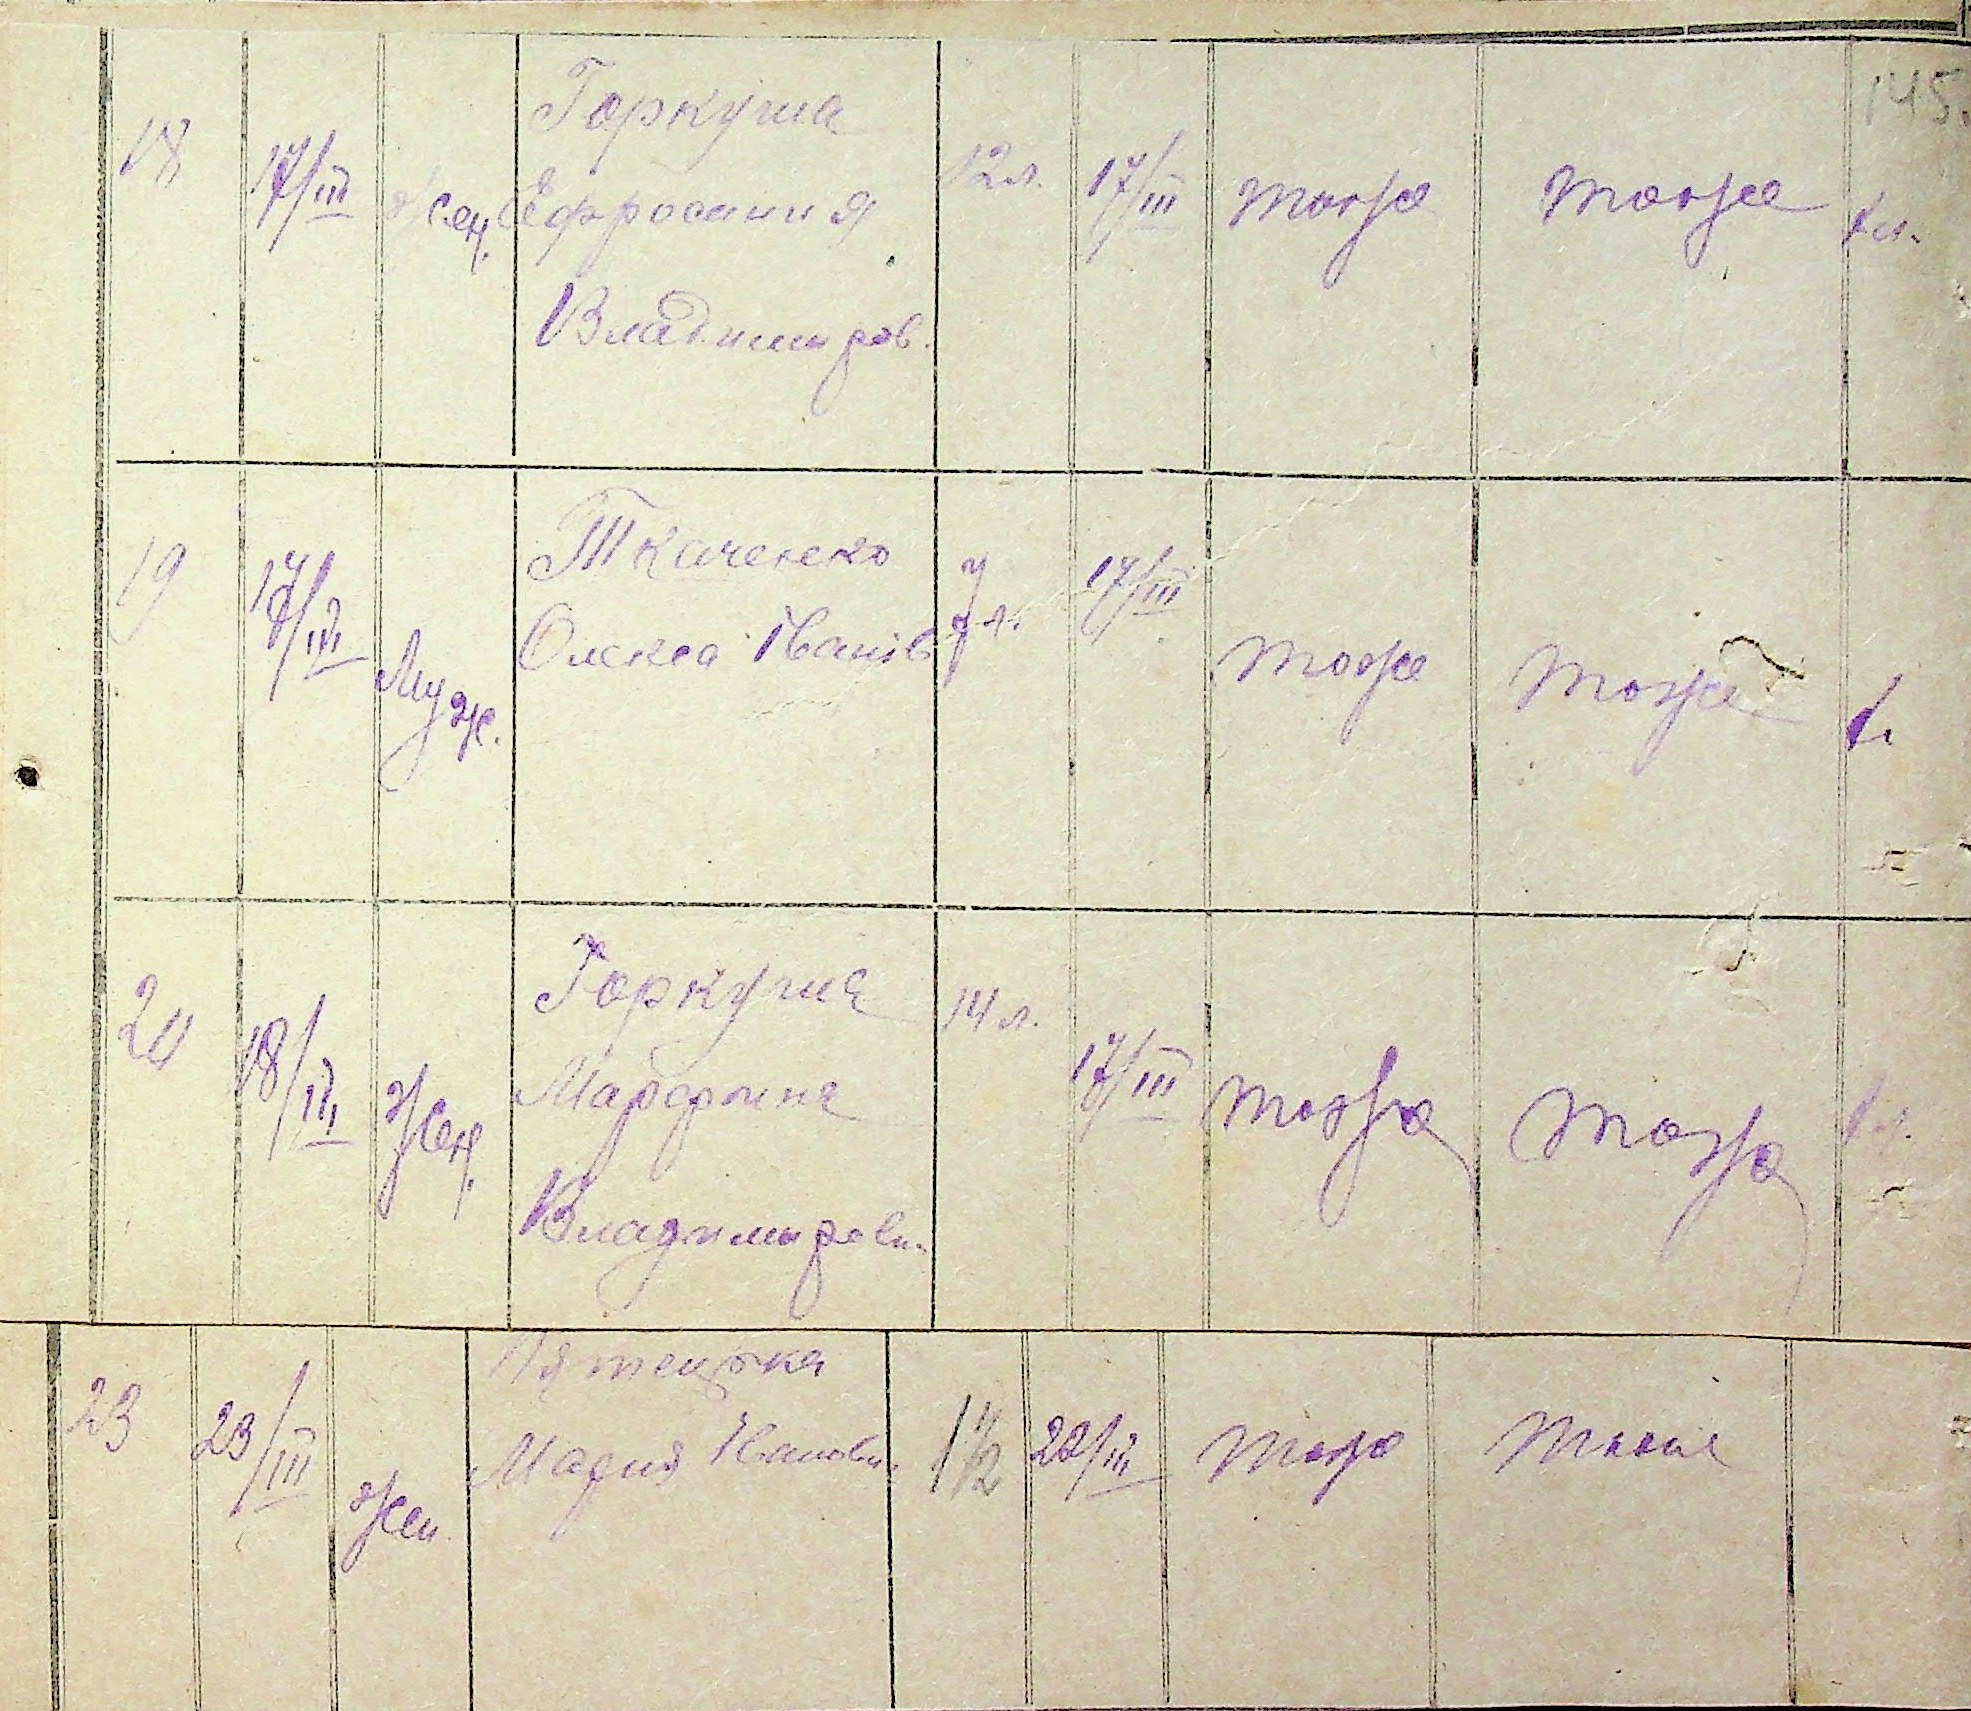 145.
18 17/III жен. Горкуша
Ефросиния
Владимиров.
12 л. 17/III тоже тоже 1 л.
19 17/III Муж. Ткаченко
Олекса Іванів
17/III тоже тоже
20 18/III жен. Горкуша
Владимировн.
14 л. 17/III тоже тоже
23 23/III жен.
Мария Ивановн.
1 1/2 22/III тоже тоже